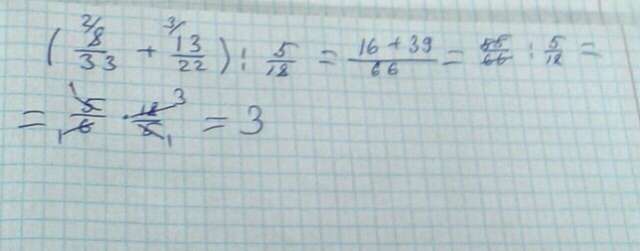 ( ²/8/33 + ³/13/22 ) : 5/18 = 16 + 39/66 = 55/66 : 5/18 =
= 5/6 · 18/5 = 3